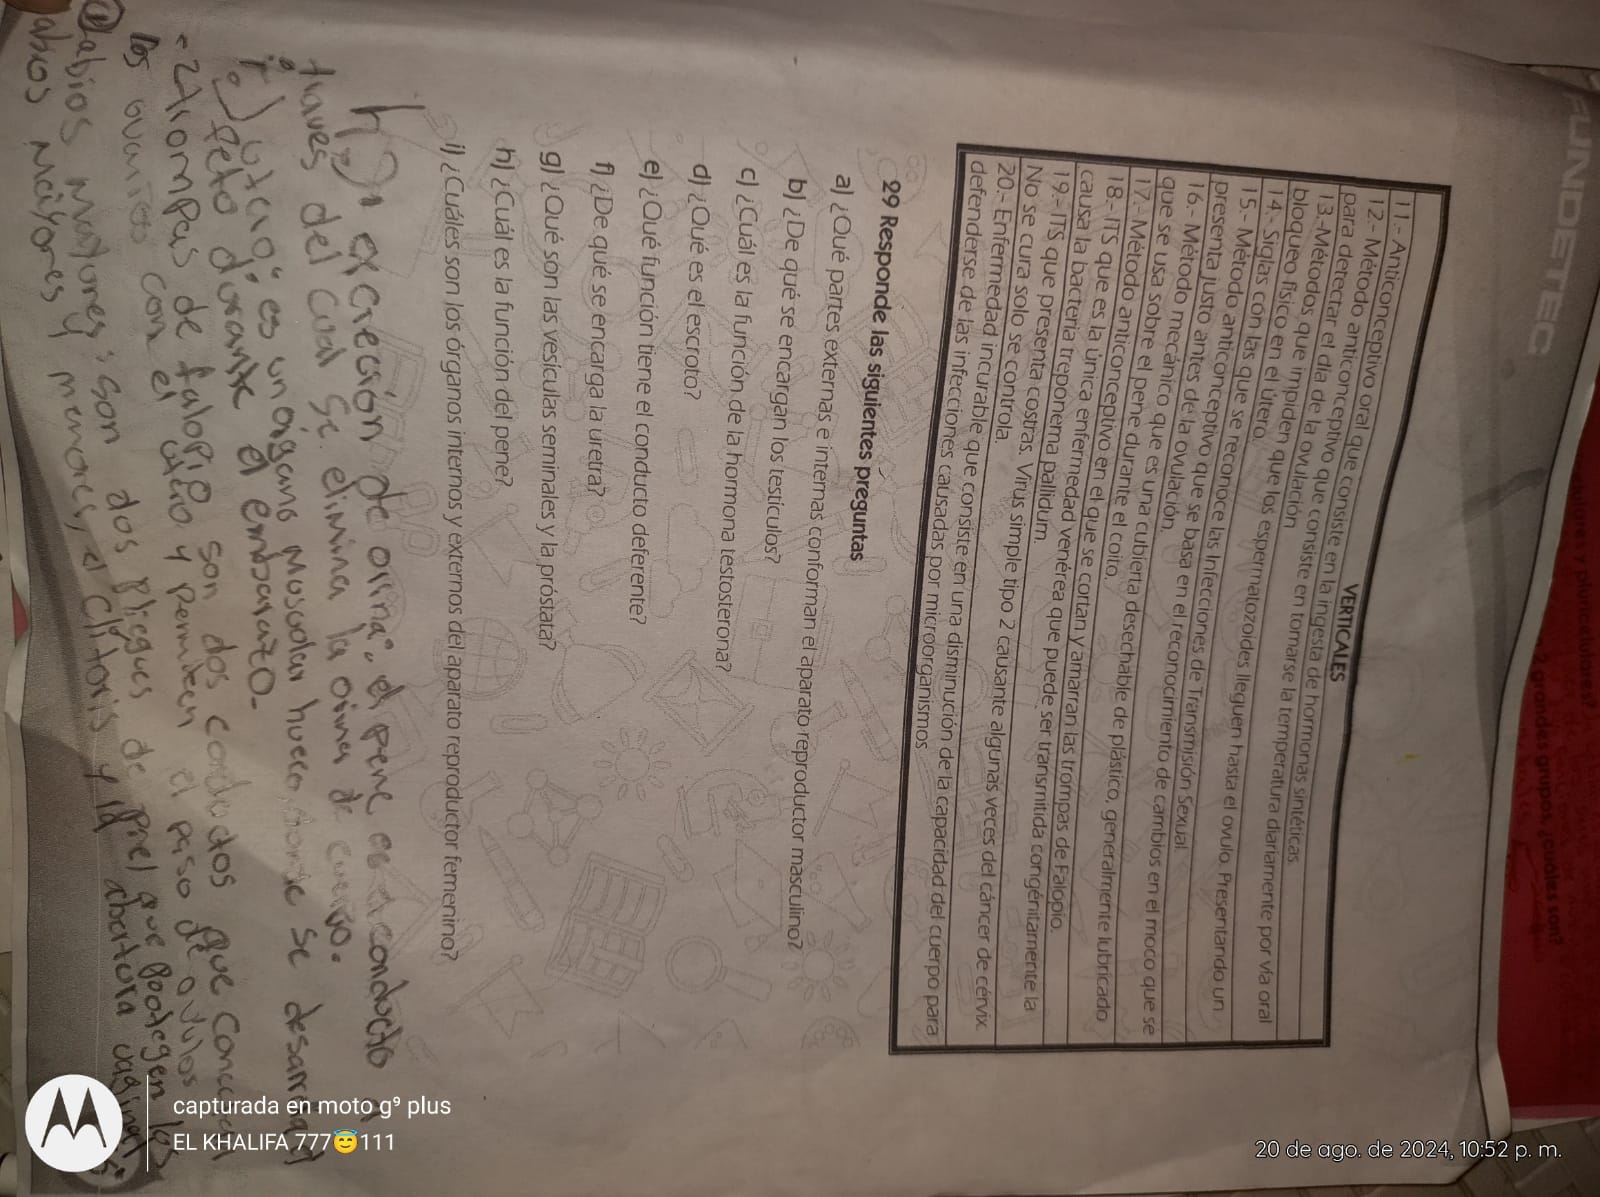 FUNDETEC
2 grandes grupos, ¿cuáles son?
VERTICALES
11.- Anticonceptivo oral que consiste en la ingesta de hormonas sintéticas.
12.- Método anticonceptivo que consiste en tomarse la temperatura diariamente por vía oral
para detectar el día de la ovulación
13.-Métodos que impiden que los espermatozoides lleguen hasta el ovulo. Presentando un
bloqueo físico en el útero.
14.- Siglas con las que se reconoce las Infecciones de Transmisión Sexual
15.- Método anticonceptivo que se basa en el reconocimiento de cambios en el moco que se
presenta justo antes de la ovulación.
16.- Método mecánico que es una cubierta desechable de plástico, generalmente lubricado
que se usa sobre el pene durante el coito.
17.- Método anticonceptivo en el que se cortan y amarran las trompas de Falopio.
18.- ITS que es la única enfermedad venérea que puede ser transmitida congénitamente la
causa la bacteria treponema pallidum.
19.- ITS que presenta costras. Virus simple tipo 2 causante algunas veces del cáncer de cérvix
No se cura solo se controla.
20.- Enfermedad incurable que consiste en una disminución de la capacidad del cuerpo para
defenderse de las infecciones causadas por microorganismos
29 Responde las siguientes preguntas
a) ¿Qué partes externas e internas conforman el aparato reproductor masculino?
b) ¿De qué se encargan los testículos?
c) ¿Cuál es la función de la hormona testosterona?
d) ¿Qué es el escroto?
e) ¿Qué función tiene el conducto deferente?
f) ¿De qué se encarga la uretra?
g) ¿Qué son las vesículas seminales y la próstata?
h) ¿Cuál es la función del pene?
i) ¿Cuáles son los órganos internos y externos del aparato reproductor femenino?
h) excreción de orina: el pene es el conducto a
traves del cual se elimina la orina de cuerpo.
i) útero: es un órgano musular hueco donde se desarrolla
feto durante el embarazo-
-trompas de falopio son dos conductos que
los ovarios con el útero y permiten el paso de ovulos
labios mayores: son dos pliegues de piel que
abios mayores y menores, el clitoris y la abertura vaginal
capturada en moto g⁹ plus
EL KHALIFA 777😇111
20 de ago. de 2024, 10:52 p. m.